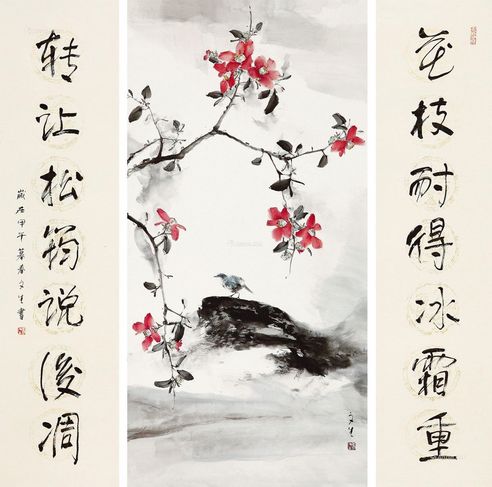 花枝耐得冰霜重
文生
转让松筠说後凋
歲在甲午暮春文生書